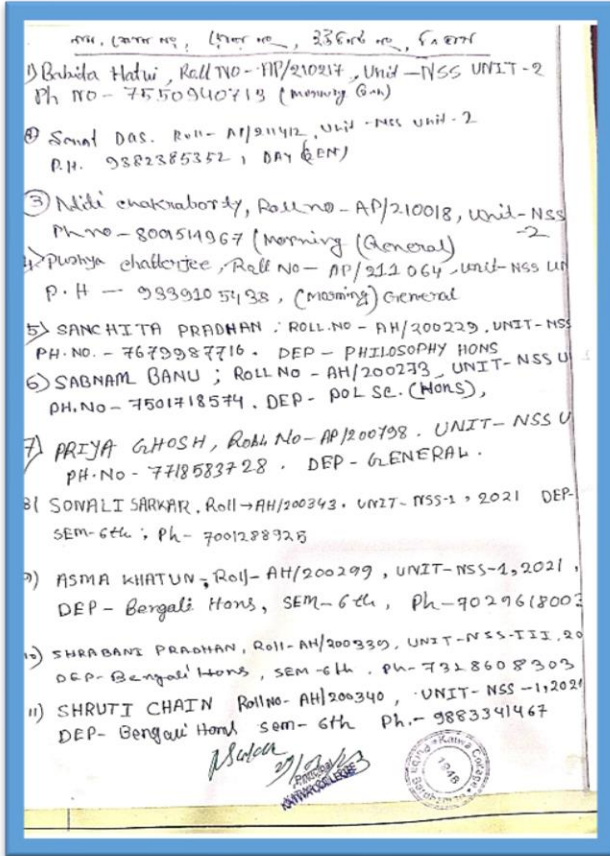 নাম, রোল নং, ফোন নং, ইউনিট নং, বিভাগ
1) Babida Hatui, Roll No - AP/210217, Unit - NSS UNIT-2
Ph NO - 7550940713 (Morning Gen)
Sanat Das. Roll - AP/211412, Unit - NSS Unit - 2
P.H. 9382385352, DAY (GEN)
3 Aditi chakraborty, Roll no - AP/210018, Unit - NSS
-2
Ph no - 8001514967 (Morning (General)
4) Pushpa chatterjee, Roll No - AP/211064, Unit - NSS UN
P.H - 9339105438, (Morning) General
5) SANCHITA PRADHAN. ROLL.NO - AH/200229, UNIT - NSS
PH.NO. - 7679987716. DEP - PHILOSOPHY HONS
6) SABNAM BANU; ROLL NO - AH/200273, UNIT - NSS U
PH.No - 7501718574. DEP - POL SC. (Hons),
7) PRIYA GHOSH, ROLL No - AP/200798. UNIT - NSS U
PH.NO - 7718583728. DEP - GENERAL.
8) SONALI SARKAR. Roll → AH/200343. UNIT - NSS-1, 2021 DEP-
SEM - 6th; Ph - 7001288925
9) ASMA KHATUN, Roll - AH/200299, UNIT - NSS-1, 2021,
DEP - Bengali Hons, SEM - 6th, Ph - 9029618003
10) SHRABANI PRADHAN, Roll - AH/200339, UNIT - NSS-III, 20
DEP - Bengali Hons, SEM - 6th. Ph - 7328608303
11) SHRUTI CHAIN Roll No - AH/200340, UNIT - NSS - 1, 2021
DEP - Bengali Hons Sem - 6th Ph. - 9883341467
Principal
KATWA COLLEGE
Katwa College
1948